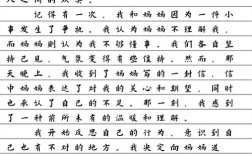 记得有一次，我和妈妈因为一件小
事发生了争执。我认为妈妈不理解我，
而妈妈则认为我不够懂事。我们各自坚
持己见，气氛变得有些僵持。然而，那
天晚上，我收到了妈妈写的一封信，信
中妈妈表达了对我的关心和期望，同时
也承认了自己的不足。那一刻，我感到
了一种前所未有的温暖和理解。
我开始反思自己的行为，意识到自
己也有不对的地方。我决定向妈妈道